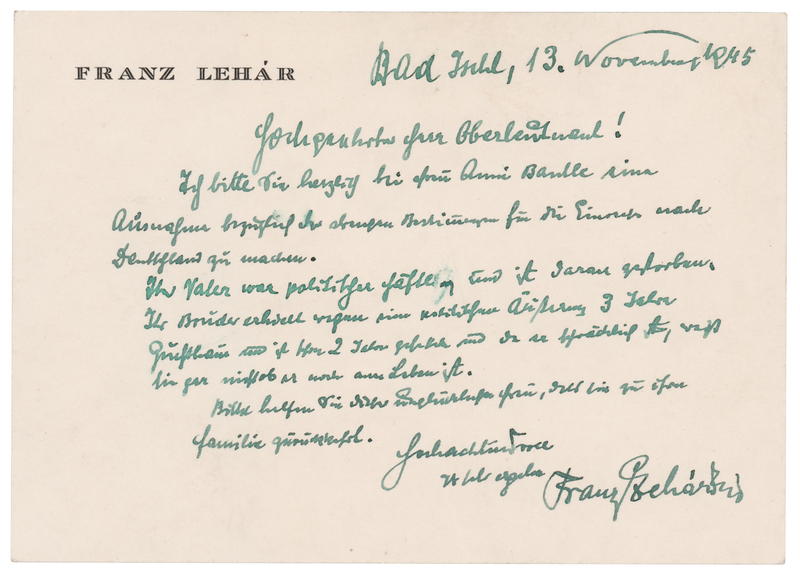 FRANZ LEHÁR
Bad Ischl, 13. November 1945
Hochgeehrter Herr Oberleutnant!
Ich bitte Sie herzlich bei Frau Anni Bantle eine
Ausnahme bezüglich der strengen Bestimmungen für die Einreise nach
Deutschland zu machen.
Ihr Vater war politischer Häftling und ist daran gestorben.
Ihr Bruder erhielt wegen einer politischen Äußerung 3 Jahre
Zuchthaus und ist schon 2 Jahre und da er ist, weiß
sie gar nicht ob er noch am Leben ist.
Bitte helfen Sie dieser unglücklichen Frau, daß sie zu ihrer
Familie zurückkehrt.
Hochachtungsvoll
Ihr sehr ergebener
Franz Lehár